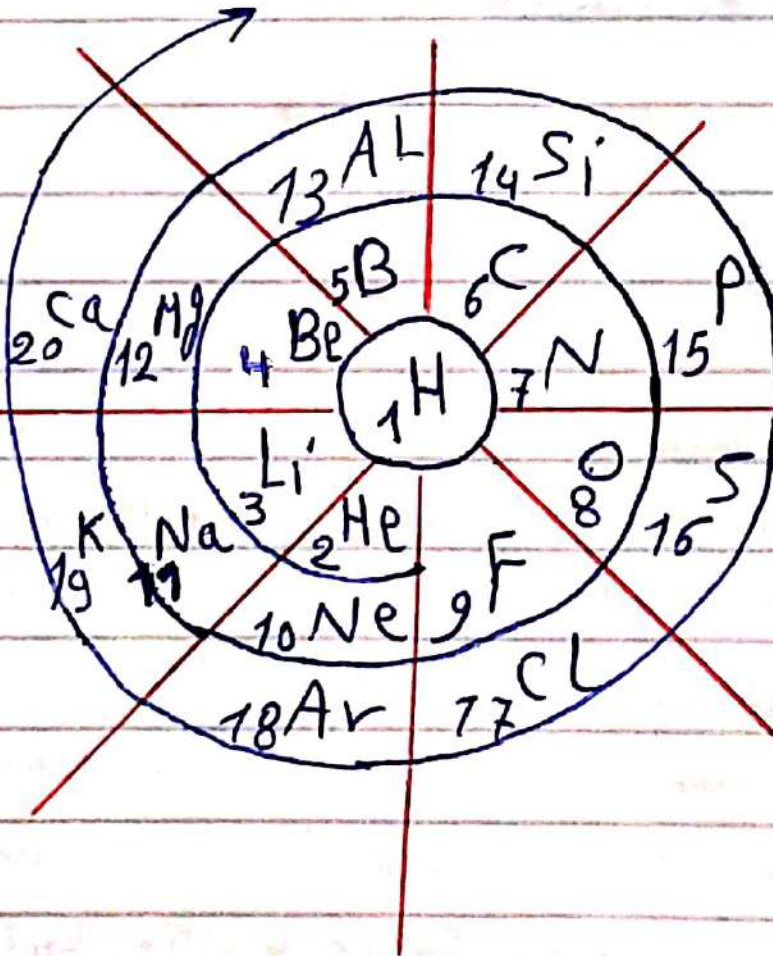 1H
2He
3Li
4Be
5B
6C
7N
8O
9F
10Ne
11Na
12Mg
13AL
14Si
15P
16S
17CL
18Ar
19K
20Ca